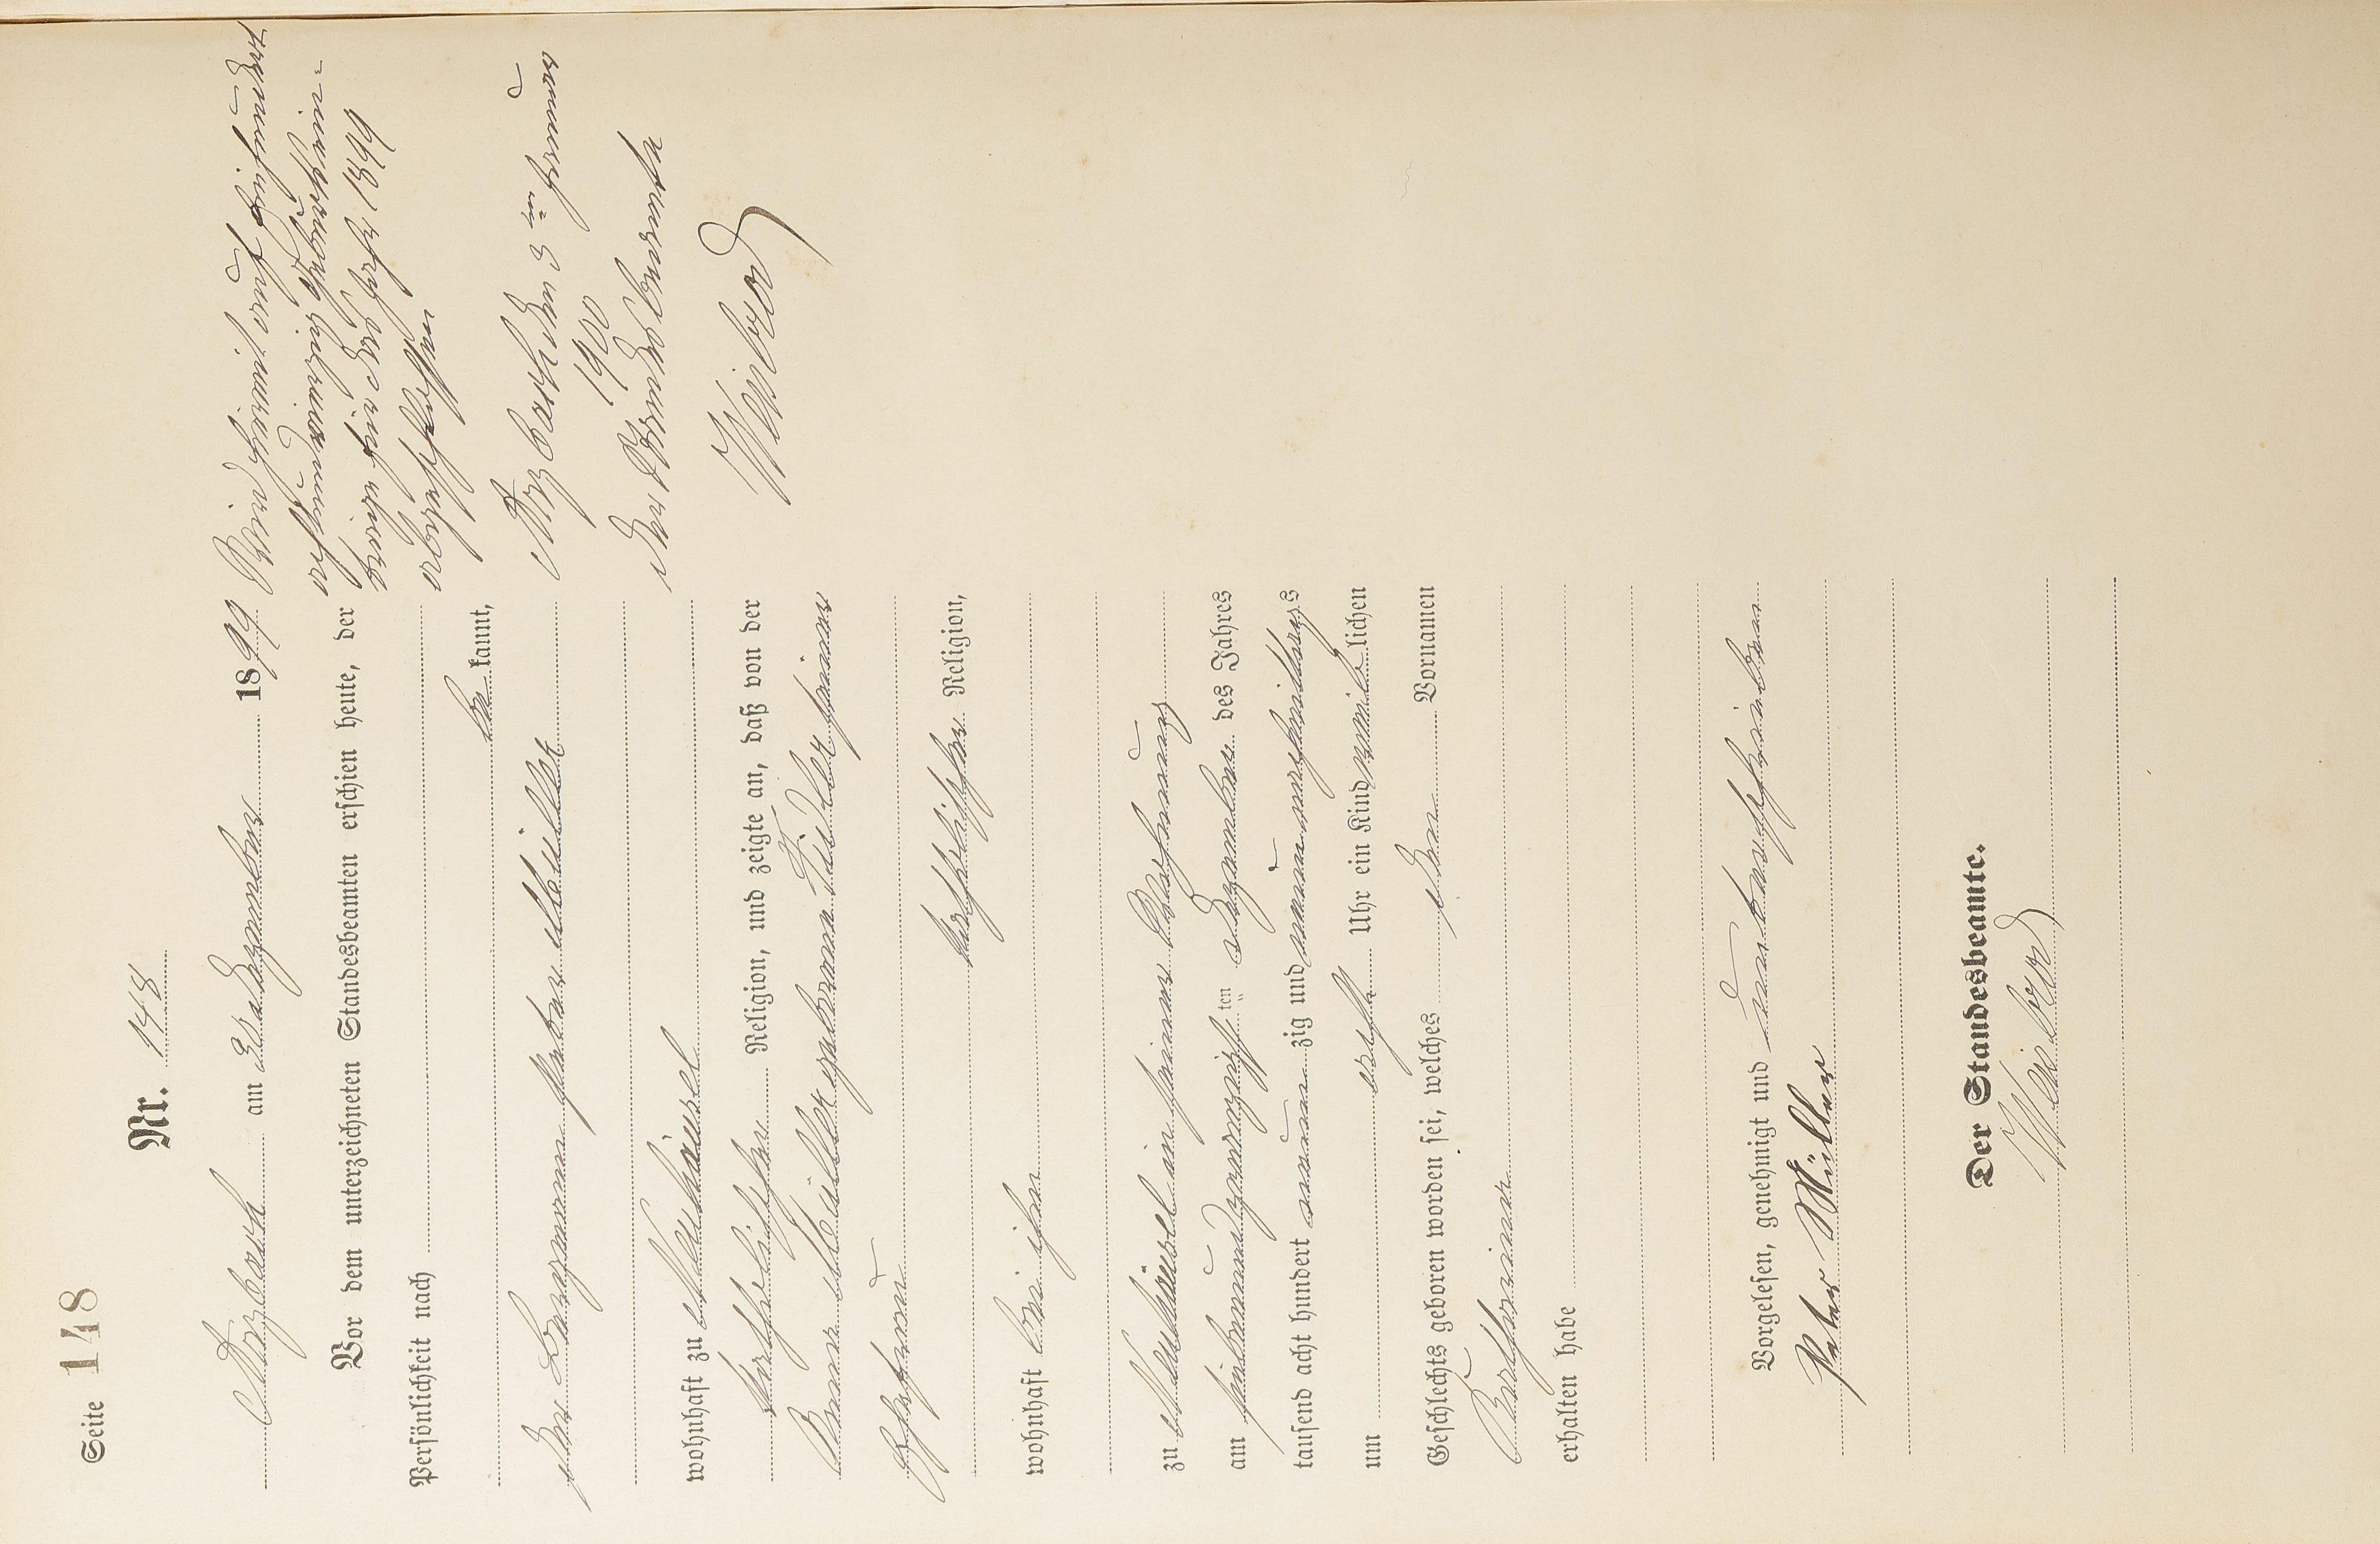 Seite 148
Nr. 148
Arzbach am 30 Dezember 1899
Vor dem unterzeichneten Standesbeamten erschien heute, der
Persönlichkeit nach
be kannt,
der Bergmann Peter Müller
wohnhaft zu Neuhäusel
katholischer Religion, und zeigte an, daß von der
Anna Müller geborene Tüdler seiner
Ehefrau
katholischer Religion,
wohnhaft bei ihm
zu Neuhäusel in seiner Wohnung
am siebenundzwanzigsten Dezember des Jahres
tausend acht hundert neun zig und neun nachmittags
um acht Uhr ein Kind weib lichen
Geschlechts geboren worden sei, welches den Vornamen
Katharina
erhalten habe
Vorgelesen, genehmigt und unterschrieben
Peter Müller
Der Standesbeamte.
Weisbrod
Wird hiermit auf hundert
achtundvierzig Eintragun=
gen für das Jahr 1899
abgeschlossen
Arzbach den 3ten Januar
1900
Der Standesbeamte
Weisbrod